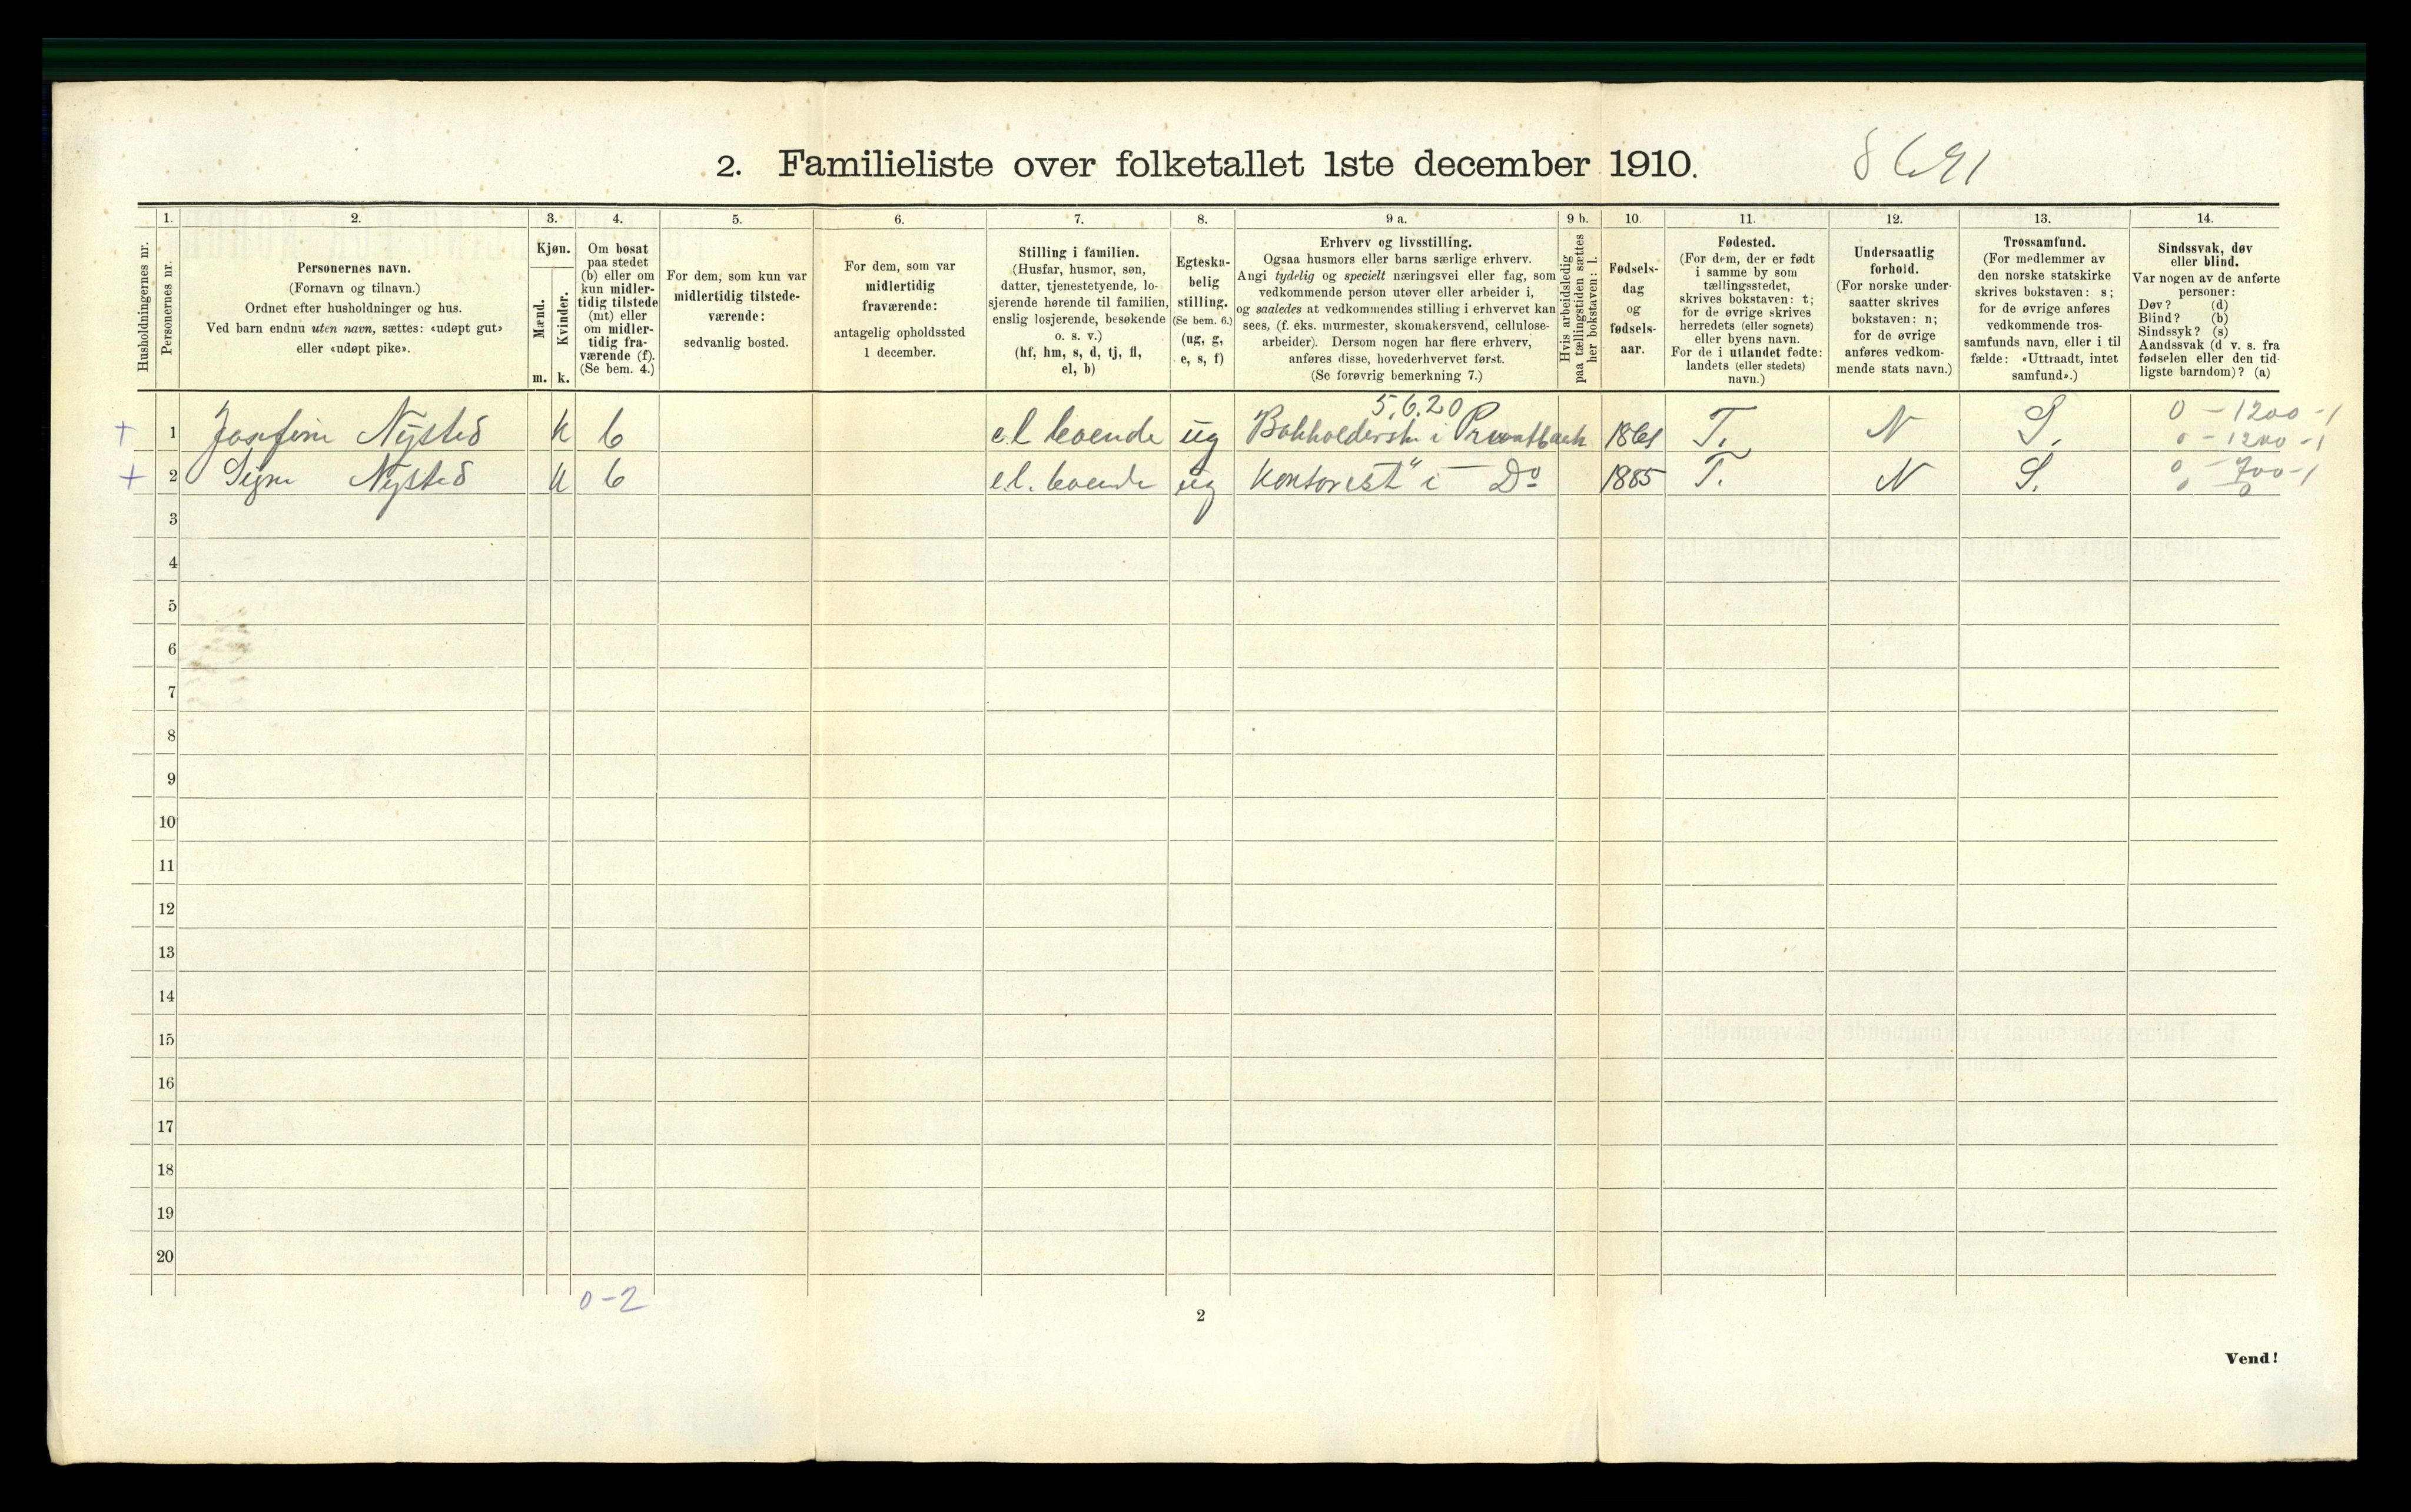 2. Familieliste over folketallet 1ste december 1910.
Husholdningernes nr.
1.
Personernes nr.
2.
Personernes navn.
(Fornavn og tilnavn.)
Ordnet efter husholdninger og hus.
Ved barn endnu uten navn, sættes: «udøpt gut»
eller «udøpt pike».
3.
Kjøn.
Mænd.
m.
Kvinder.
k.
4.
Om bosat
paa stedet
(b) eller om
kun midler-
tidig tilstede
(mt) eller
om midler-
tidig fra-
værende (f).
(Se bem. 4.)
5.
For dem, som kun var
midlertidig tilstede-
værende:
sedvanlig bosted.
6.
For dem, som var
midlertidig
fraværende:
antagelig opholdssted
1 december.
7.
Stilling i familien.
(Husfar, husmor, søn,
datter, tjenestetyende, lo-
sjerende hørende til familien,
enslig losjerende, besøkende
o. s. v.)
(hf, hm, s, d, tj, fl,
el, b)
8.
Egteska-
belig
stilling.
(Se bem. 6.)
(ug, g,
e, s, f)
9 a.
Erhverv og livsstilling.
Ogsaa husmors eller barns særlige erhverv.
Angi tydelig og specielt næringsvei eller fag, som
vedkommende person utøver eller arbeider i,
og saaledes at vedkommendes stilling i erhvervet kan
sees, (f. eks. murmester, skomakersvend, cellulose-
arbeider). Dersom nogen har flere erhverv,
anføres disse, hovederhvervet først.
(Se forøvrig bemerkning 7.)
9 b.
Hvis arbeidsledig
paa tællingstiden sættes
her bokstaven: l.
10.
Fødsels-
dag
og
fødsels-
aar.
11.
Fødested.
(For dem, der er født
i samme by som
tællingsstedet,
skrives bokstaven: t;
for de øvrige skrives
herredets (eller sognets)
eller byens navn.
For de i utlandet fødte:
landets (eller stedets)
navn.)
12.
Undersaatlig
forhold.
(For norske under-
saatter skrives
bokstaven: n;
for de øvrige
anføres vedkom-
mende stats navn.)
13.
Trossamfund.
(For medlemmer av
den norske statskirke
skrives bokstaven: s;
for de øvrige anføres
vedkommende tros-
samfunds navn, eller i til
fælde: «Uttraadt, intet
samfund».)
14.
Sindssvak, døv
eller blind.
Var nogen av de anførte
personer:
Døv? (d)
Blind? (b)
Sindssyk? (s)
Aandssvak (d v. s. fra
fødselen eller den tid-
ligste barndom)? (a)
5.6.20
0 - 1200 - 1
+ 1 Josefine Nysted k b el boende ug i Privatbank T. N S.
0 - 1200 - 1
+ 2 Signe Nysted k b el. boende ug Kontorist" i — Do 1885 T. N S.
0 - 700 - 1
0 - 0
3
4
5
6
7
8
9
10
11
12
13
14
15
16
17
18
19
20
0-2
2
Vend!